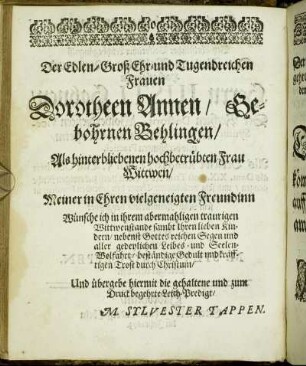 Der Edlen/ Groß Ehr- und Tugendreichen
Frauen
Dorotheen Annen/ Ge-
bohrnen Behlingen/
Als hinterbliebenen hochbetrübten Frau
Wittwen/
Meiner in Ehren vielgeneigten Freundinn
Wünsche ich in ihrem abermahligen traurigen
Wittwenstande sambt ihren lieben Kin-
dern/ nebenst Gottes reichen Segen und
aller gedeylichen Leibes- und Seelen-
Wolfahrt/ beständige Gedult und kräff-
tigen Trost durch Christum/
Und übergebe hiermit die gehaltene und zum
Druck begehrte Leich-Predigt/
M. SYLVESTER TAPPEN.